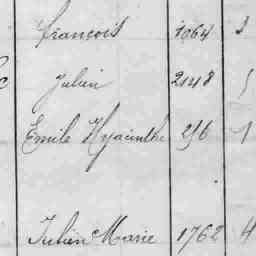 François 1064
Julien 2148
Emile Hyacinthe 296
Julien Marie 1762 4